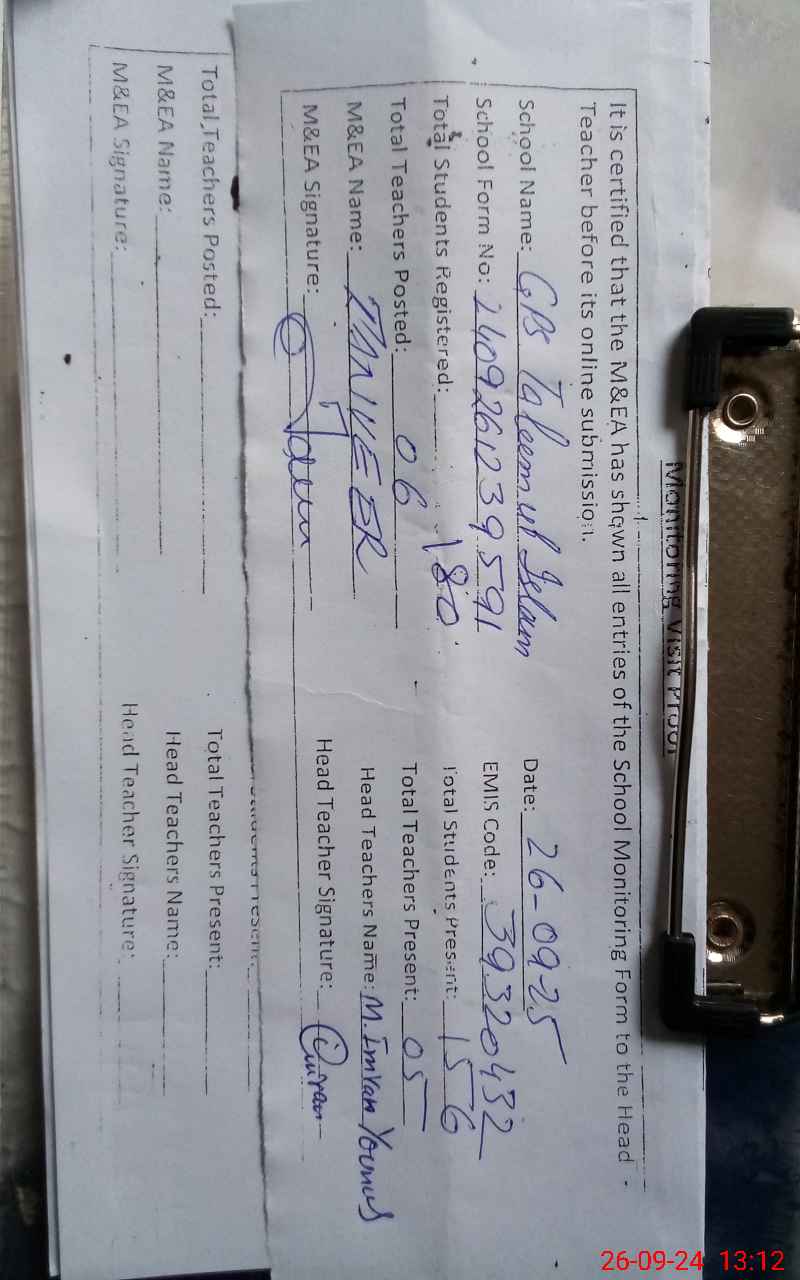 Monitoring Visit Proof
It is certified that the M&EA has shown all entries of the School Monitoring Form to the Head
Teacher before its online submission.
School Name: GPS Taleem ul Islam Date: 26-09-25
School Form No: 2409261239591 EMIS Code: 39320432
Total Students Registered: 180 Total Students Present: 156
Total Teachers Posted: 06 Total Teachers Present: 05
M&EA Name: TANVEER Head Teachers Name: M. Imran Younus
M&EA Signature: Head Teacher Signature: Imran
Students Present:
Total Teachers Posted: Total Teachers Present:
M&EA Name: Head Teachers Name:
M&EA Signature: Head Teacher Signature:
26-09-24 13:12